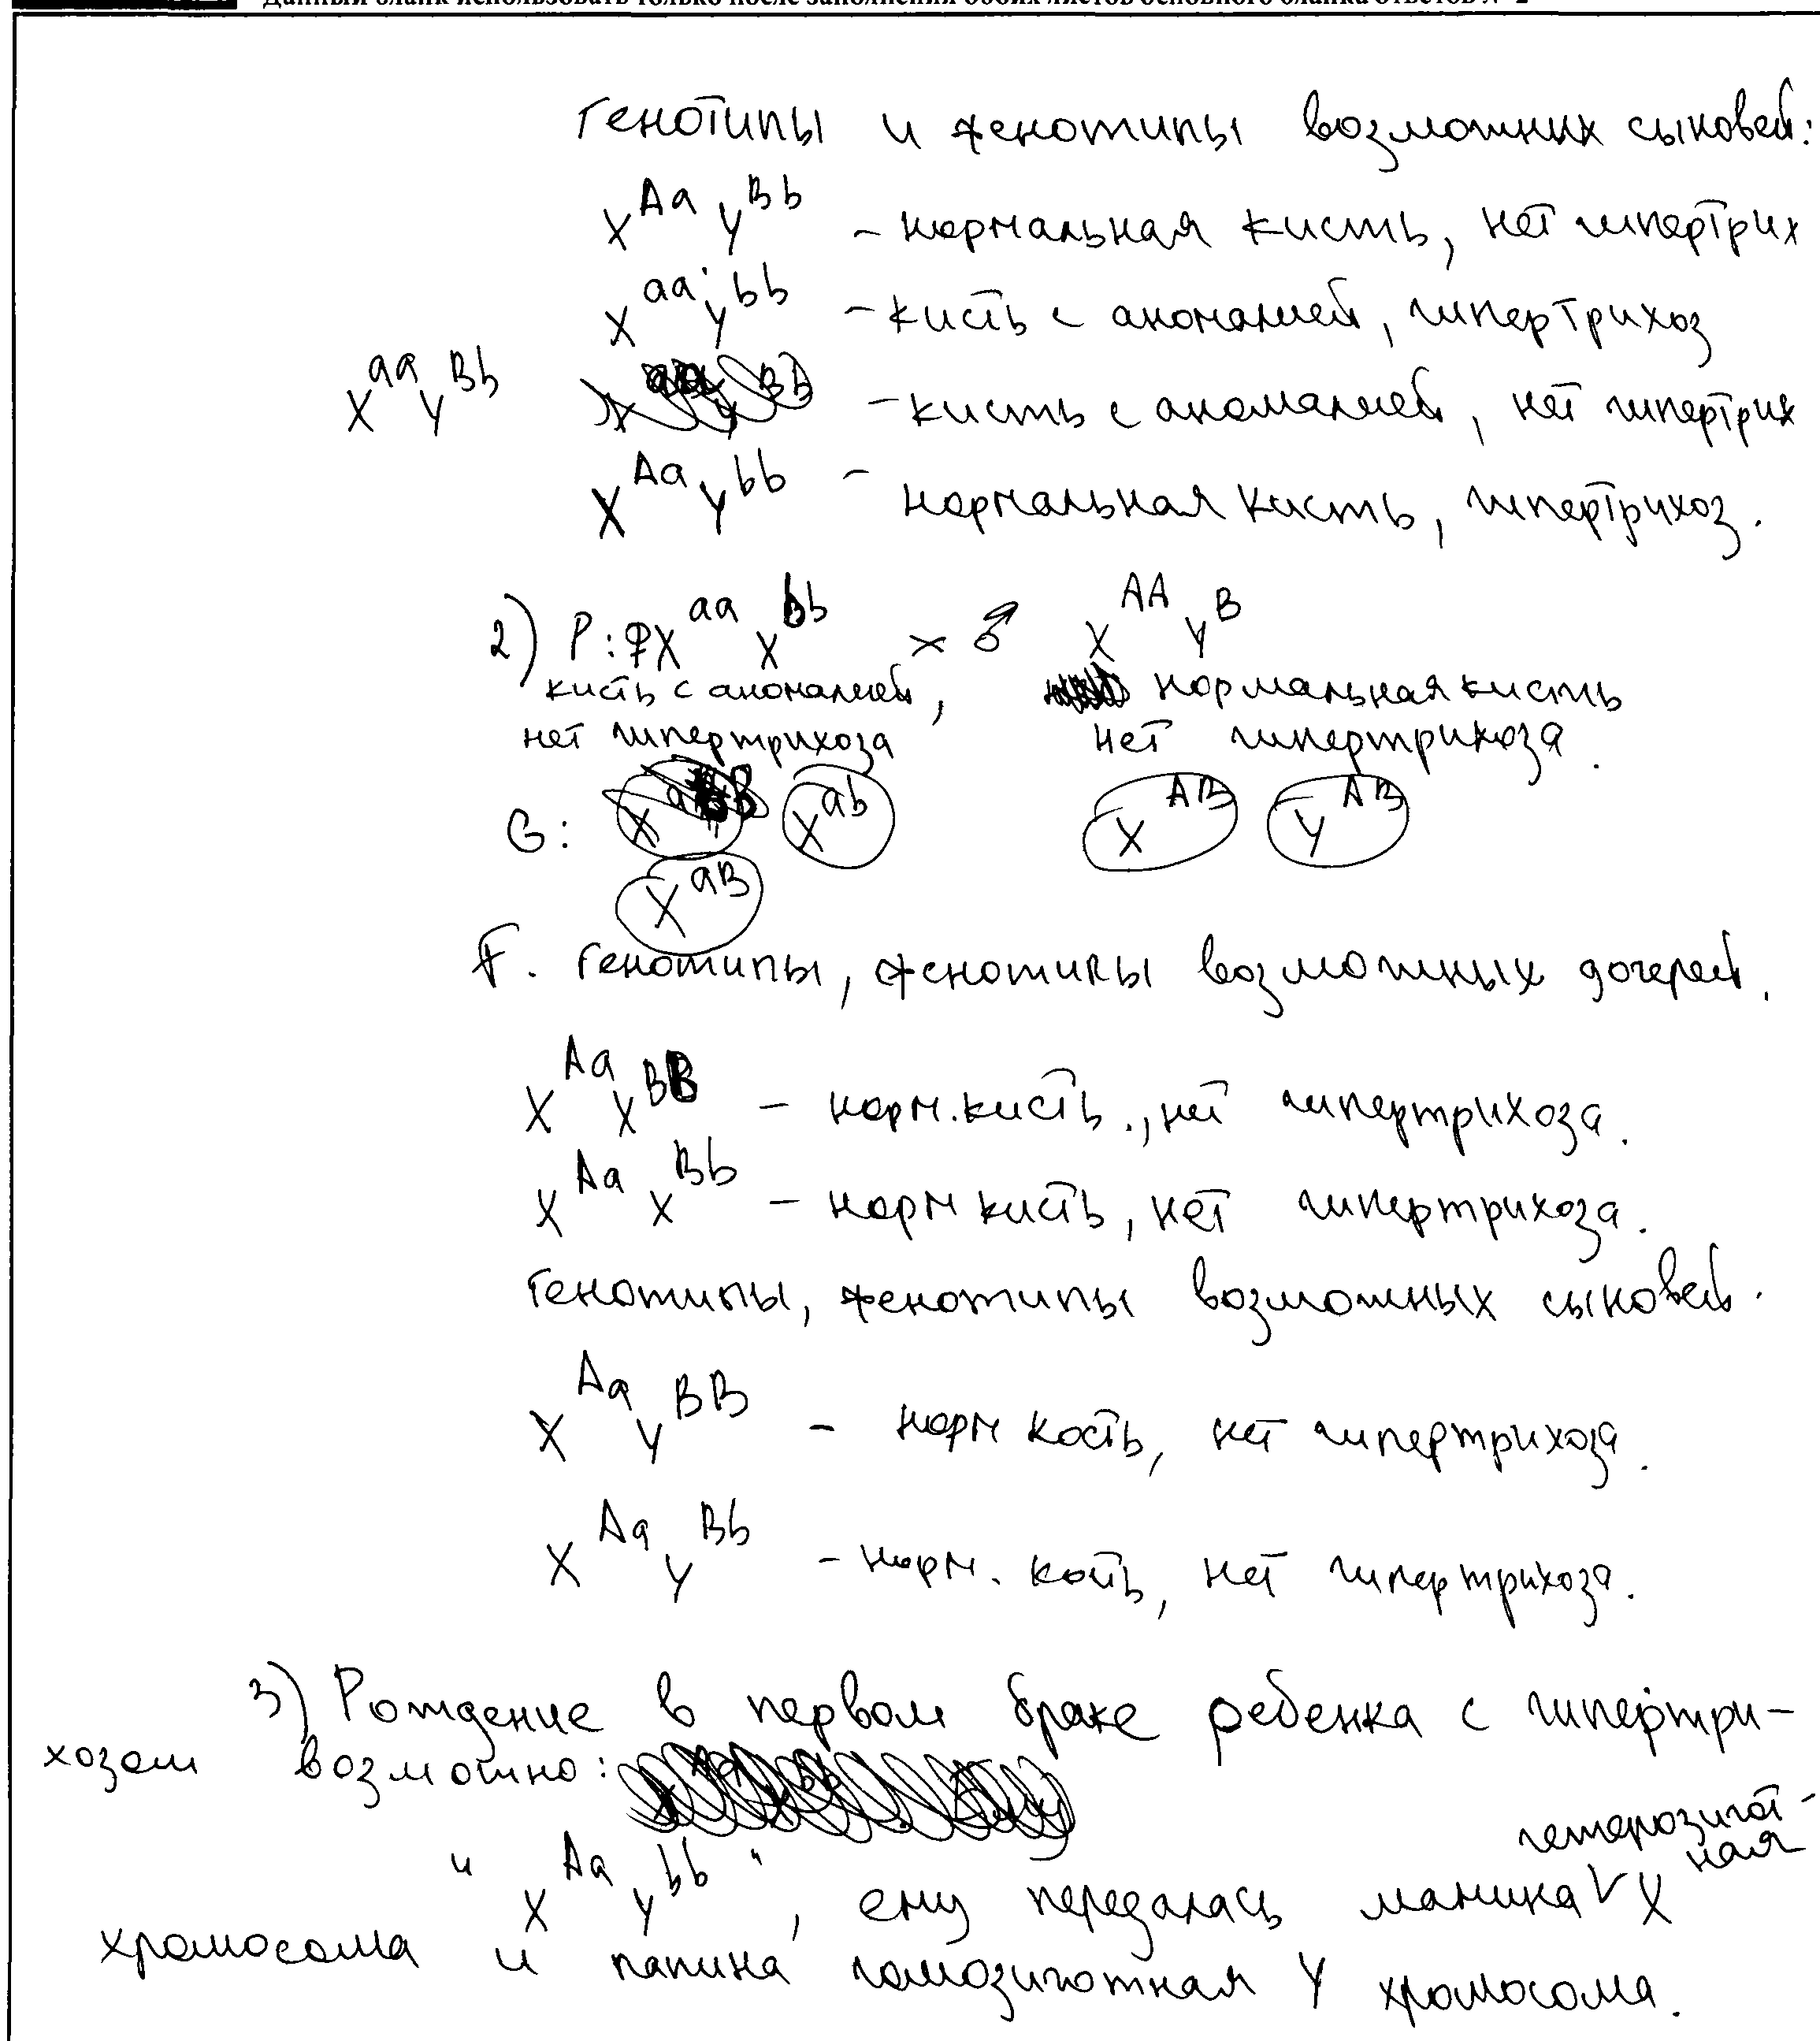 Данный бланк использовать только после заполнения обоих листов основного бланка ответов № 2
Генотипы и фенотипы возможных сыновей:
X^Aa Y^Bb - нормальная кисть, нет гипертрих
X^aa Y^bb - кисть с аномалией, гипертрихоз
X^aa Y^Bb - кисть с аномалией, нет гипертрих
X^Aa Y^bb - нормальная кисть, гипертрихоз.
2) P: ♀X^aa X^Bb × ♂ X^AA Y^B
кисть с аномалией, нормальная кисть
нет гипертрихоза нет гипертрихоза.
G: X^ab X^AB Y^AB
X^aB
F. Генотипы, фенотипы возможных дочерей.
X^Aa X^BB - норм. кисть., нет гипертрихоза.
X^Aa X^Bb - норм кисть, нет гипертрихоза.
Генотипы, фенотипы возможных сыновей.
X^Aa Y^BB - норм кость, нет гипертрихоза.
X^Aa Y^Bb - норм. коть, нет гипертрихоза.
3) Рождение в первом браке ребенка с гипертри-
хозом возможно:
" X^Aa Y^bb ", ему передалась мамина гетерозигот-ная X
хромосома и папина гомозиготная Y хромосома.